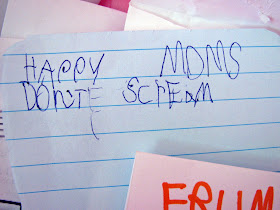 HAPPY MOMS
DONTE SCREAM
FRUM